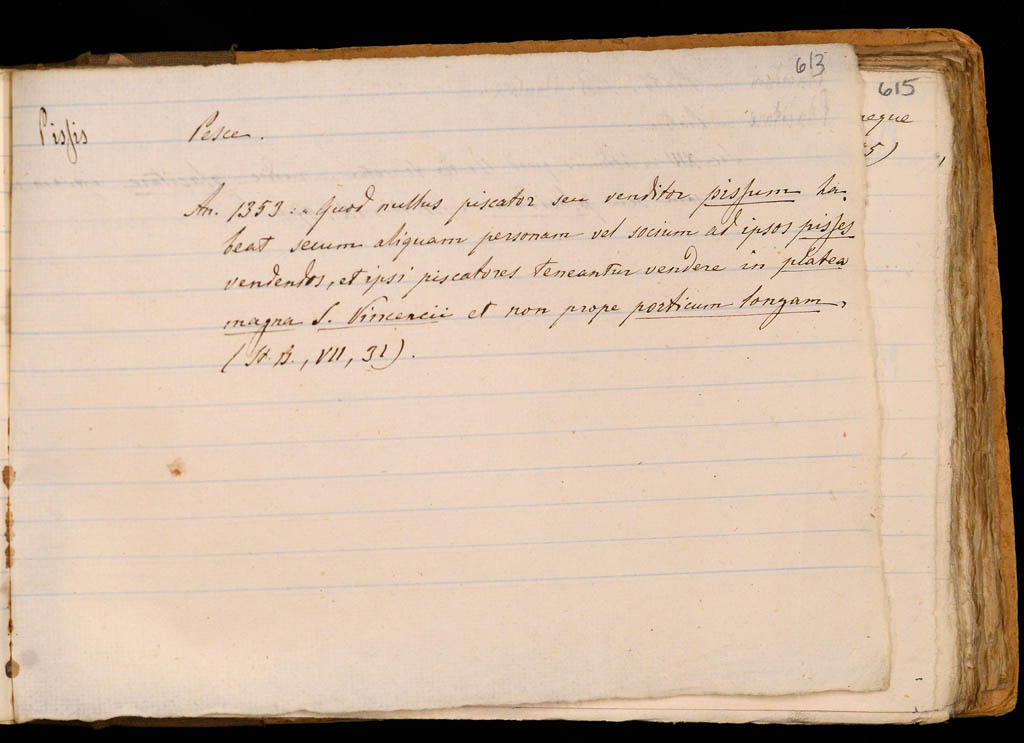 613
615
Pissis Pesce.
neque
5)
An. 1353: Quod nullus piscator seu venditor pissum ha-
beat secum aliquam personam vel socium ad ipsos pisses
vendendos, et ipsi piscatores teneantur vendere in platea
magna S. Vincencii et non prope porticum longam,
(St. B., VII, 31).